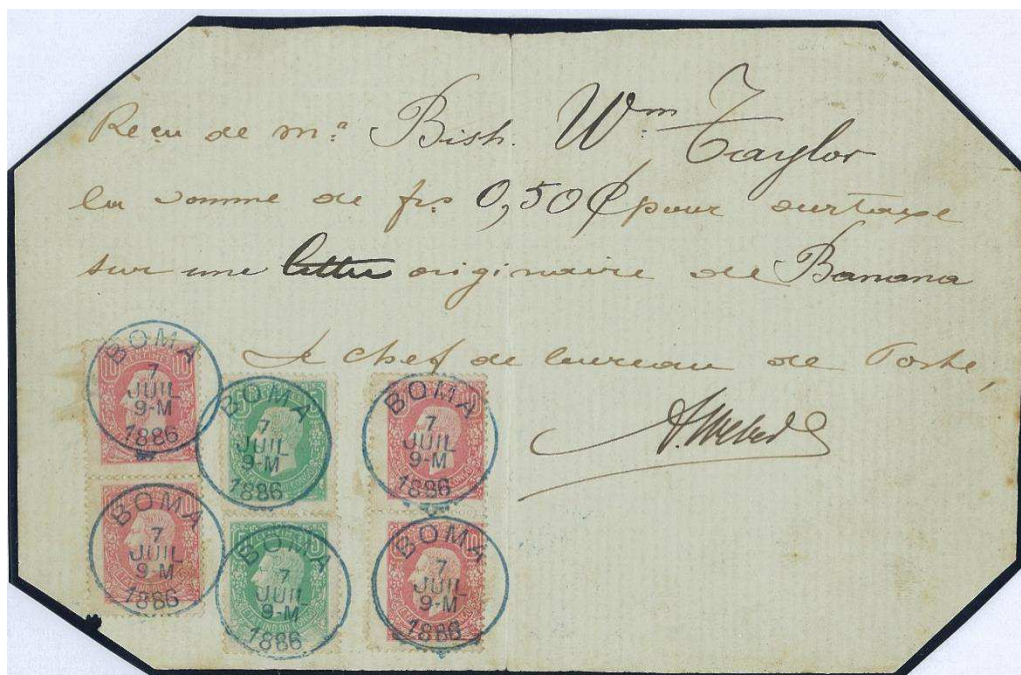 Reçu de Mr Bish. Wm Taylor
la somme de frs 0,50 ¢ pour surtaxe
sur une lettre originaire de Banana
Le chef de bureau de Poste,
BOMA
7
JUIL
9-M
1886
BOMA
7
JUIL
9-M
1886
BOMA
7
JUIL
9-M
1886
BOMA
7
JUIL
9-M
1886
BOMA
7
JUIL
9-M
1886
BOMA
7
JUIL
9-M
1886